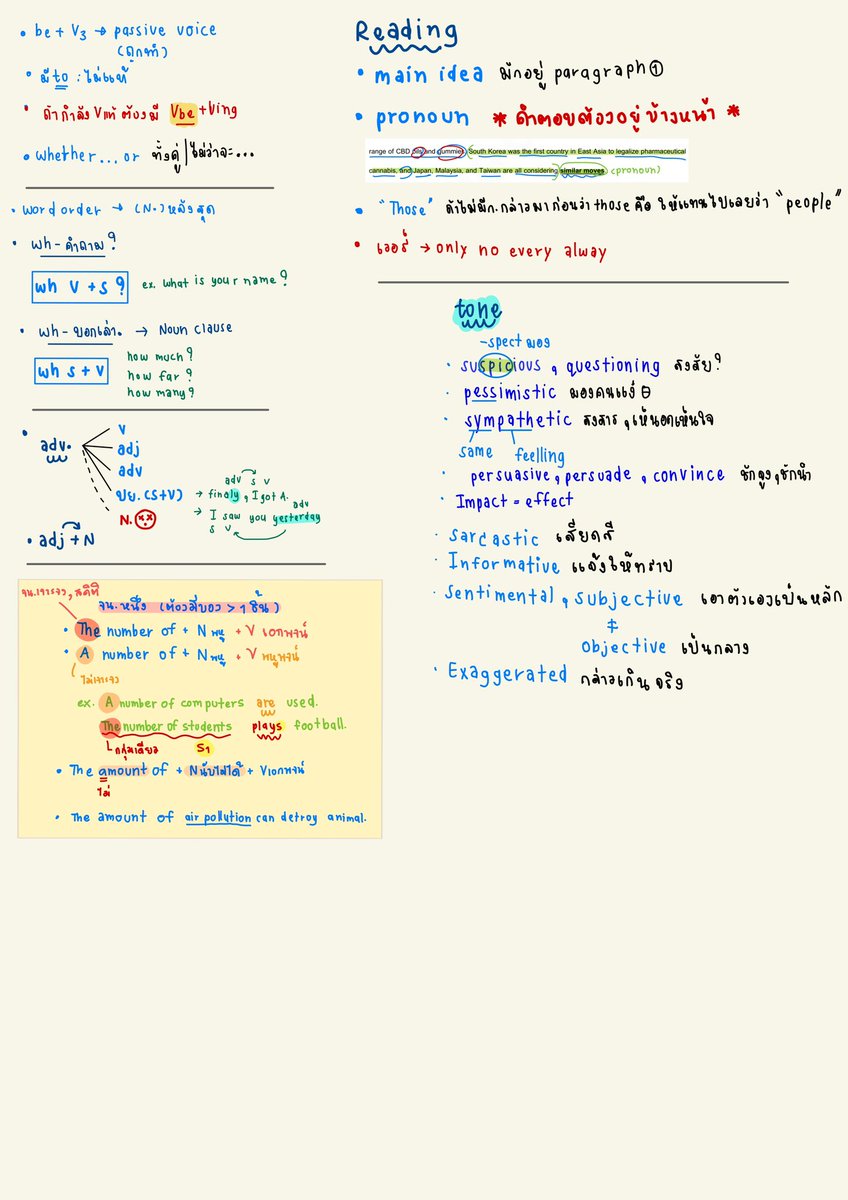 • be + V3 → passive voice
(ถูกทำ)
• มี to : ไม่แท้
• ถ้ากำลัง Vแท้ ต้องมี Vbe + Ving
• whether...or ทั้งคู่ | ไม่ว่าจะ...
• word order → (N.) หลังสุด
• wh - คำถาม ?
wh V + S ?
ex. what is your name ?
• wh - บอกเล่า. → Noun clause
wh S + V
how much ?
how far ?
how many ?
• adv.
V
adj
adv
ปย. (S+V)
N.
adv S V
→ finaly, I got A.
adv
→ I saw you yesterday
S V
• adj + N
จน.หนึ่ง (ต้องมีของ > 1 ชิ้น)
• The number of + N พหู + V เอกพจน์
• A number of + N พหู + V พหูพจน์
ไม่เจาะจง
ex. A number of computers are used.
The number of students plays football.
กลุ่มเดียว S1
• The amount of + Nนับไม่ได้ + Vเอกพจน์
ไม่
• The amount of air pollution can detroy animal.
Reading
• main idea มักอยู่ paragraph ①
• pronoun * คำตอบต้องอยู่ข้างหน้า *
range of CBD oils and gummies. South Korea was the first country in East Asia to legalize pharmaceutical
cannabis, and Japan, Malaysia, and Taiwan are all considering similar moves. (pronoun)
• "Those" ถ้าไม่มีก.กล่าวมาก่อนว่า those คือ ให้แทนไปเลยว่า "people"
• → only no every alway
tone
-spect มอง
• suspicious , questioning สงสัย?
• pessimistic มองคนแง่ ⊖
• sympathetic สงสาร , เห็นอกเห็นใจ
same feelling
• persuasive , persuade , convince ชักจูง, ชักนำ
• Impact = effect
• sarcastic เสียดสี
• Informative แจ้งให้ทราบ
• sentimental , subjective เอาตัวเองเป็นหลัก
≠
objective เป็นกลาง
• Exaggerated กล่าวเกินจริง